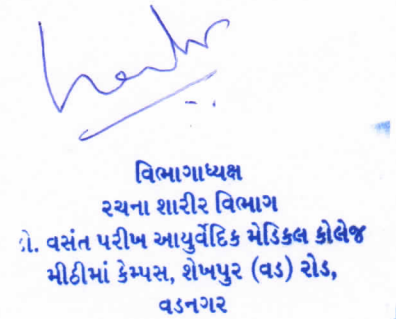 વિભાગાધ્યક્ષ
રચના શારીર વિભાગ
ડો. વસંત પરીખ આયુર્વેદિક મેડિકલ કોલેજ
મીઠીમાં કેમ્પસ, શેખપુર (વડ) રોડ,
વડનગર